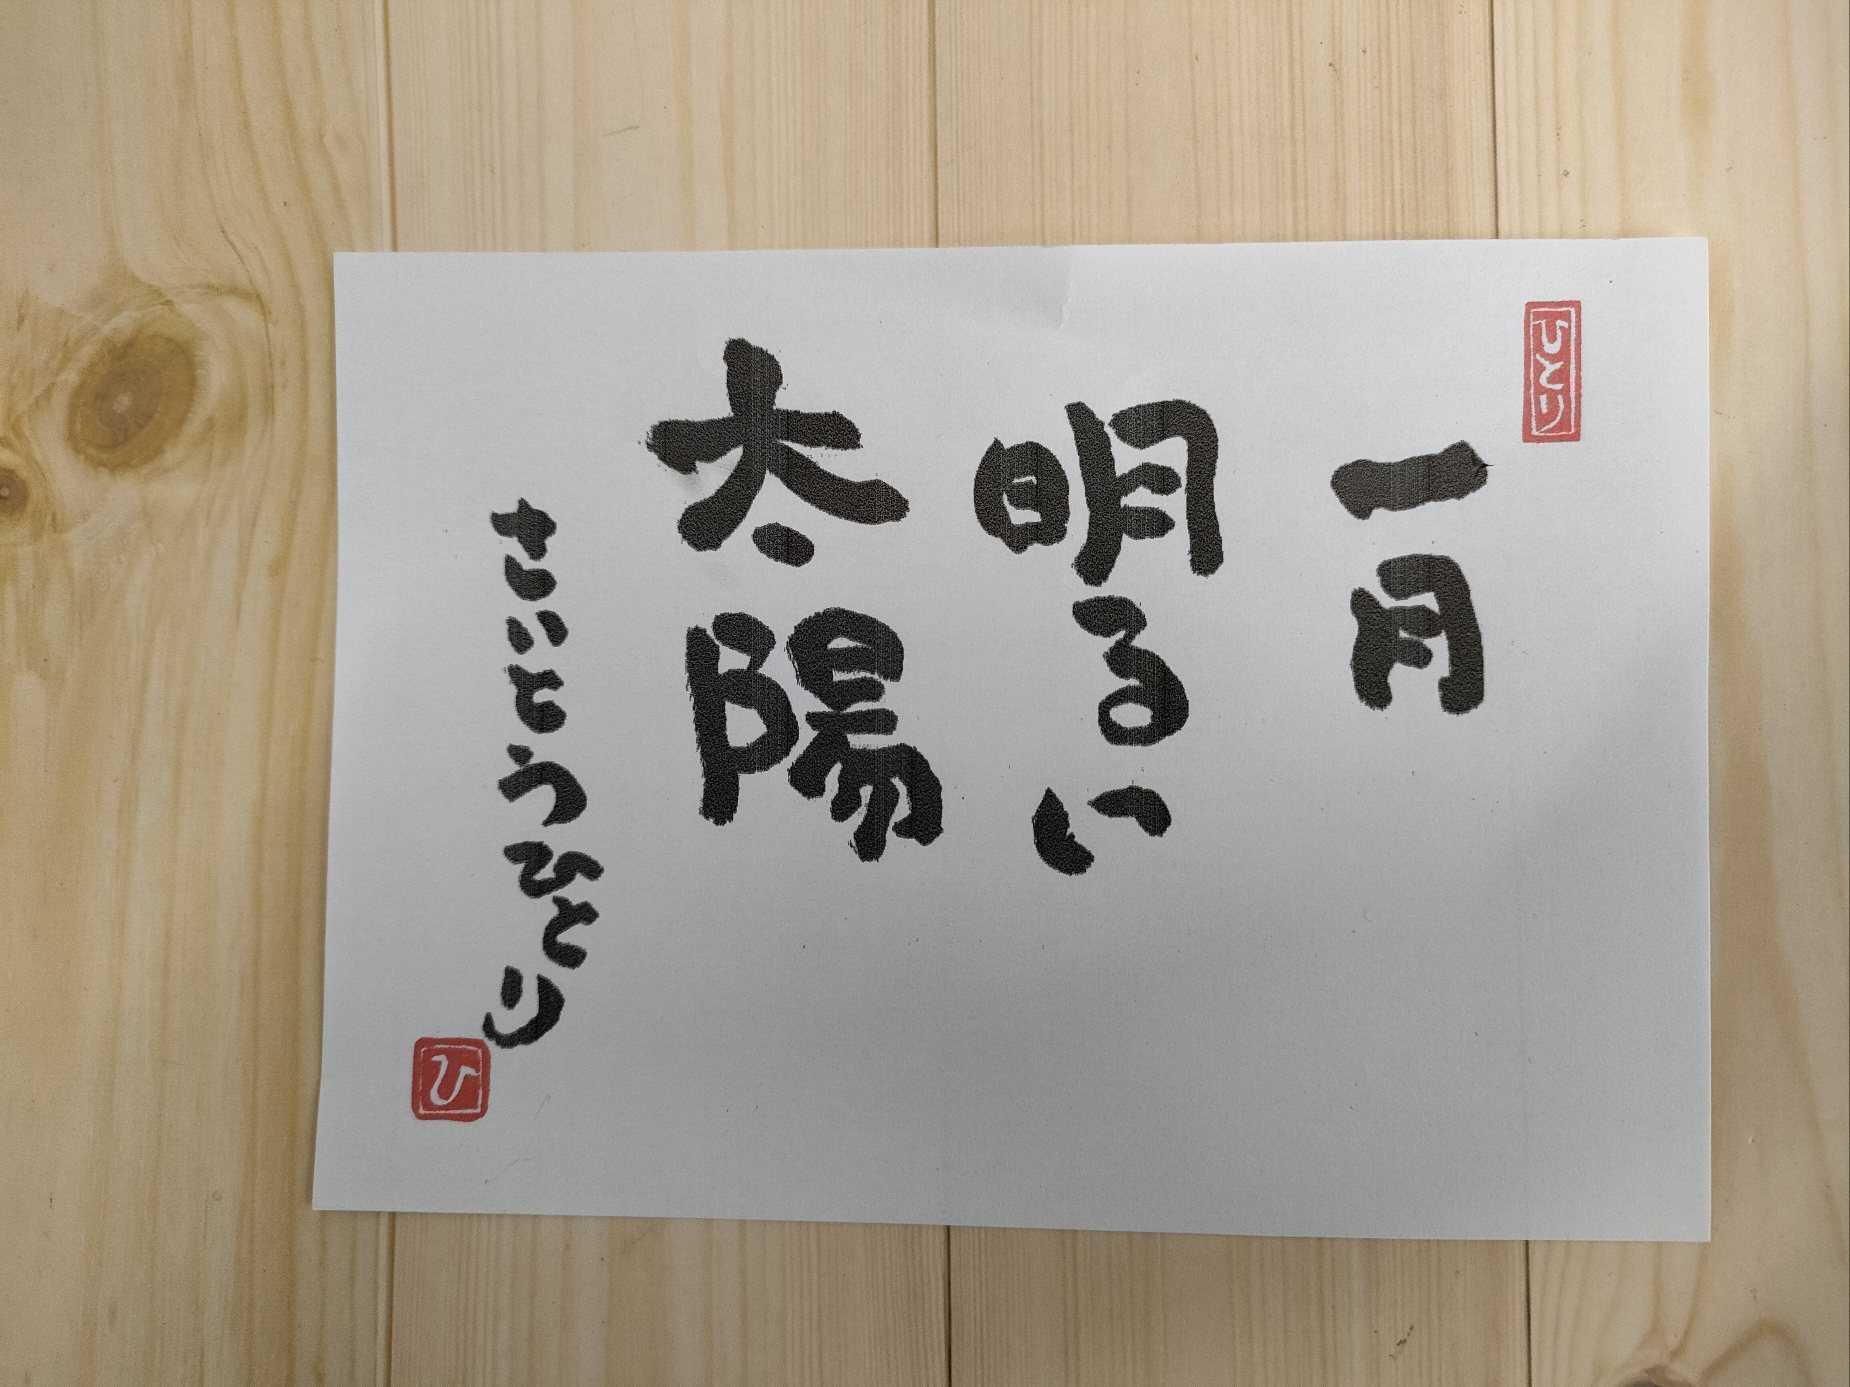 ひとり
一月
明るい
太陽
さいとうひとり
ひ